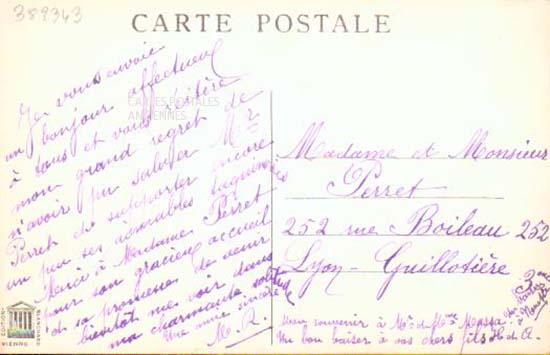 389343
CARTE POSTALE
Je vous envoie
un bonjour affectueux
à tous et vous réitère
mon grand regret de
n'avoir pu saluer Mr
Perret et supporter encore
un peu ses aimables taquineries
Merci à Madame Perret
pour son gracieux accueil
et sa promesse de venir
bientôt me voir dans
ma charmante solitude
Une amie sincère
M. R.
CARTES POSTALES
ANCIENNES
Madame et Monsieur
Perret
252 rue Boileau 252
Lyon-Guillotière
Mon souvenir à Mr & Mme Massa
Un bon baiser à vos chers fils H et A.
EDITION
BLANCHARD
VIENNE